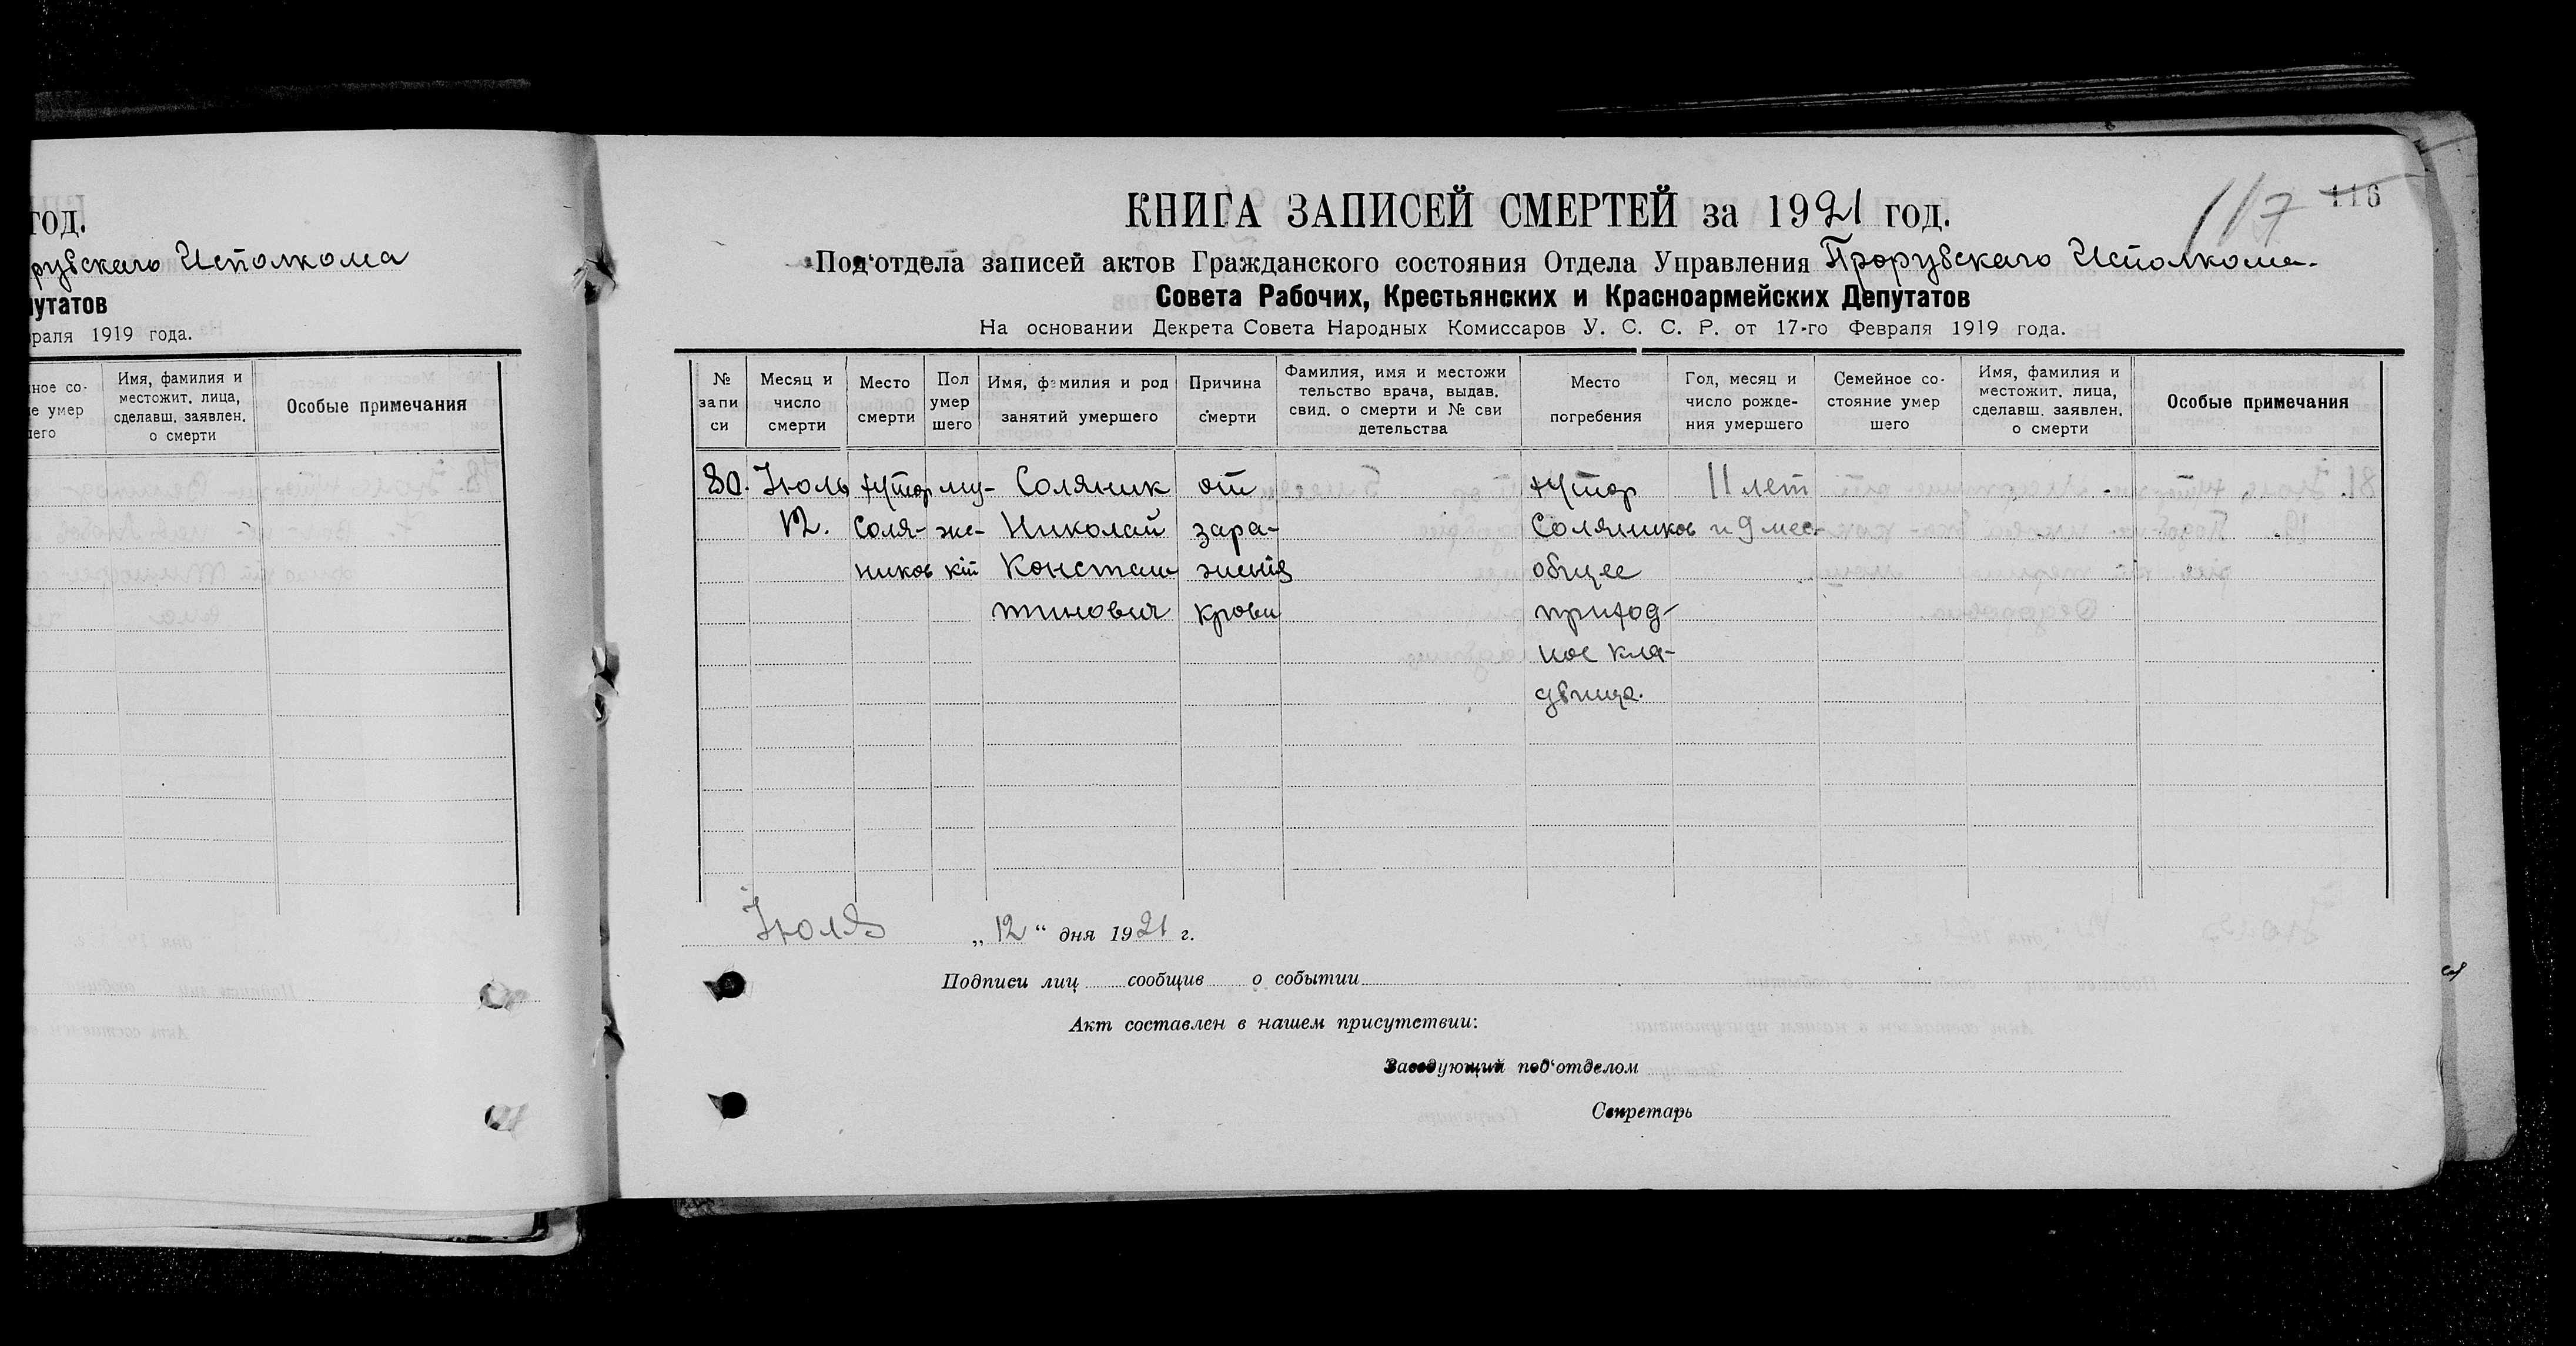 год.
рувскаго Исполкома
путатов
враля 1919 года.
ное со- Имя, фамилия и Особые примечания
е умер местожит. лица,
шего сделавш. заявлен.
о смерти
117 116
КНИГА ЗАПИСЕЙ СМЕРТЕЙ за 1921 год.
Под‘отдела записей актов Гражданского состояния Отдела Управления Прорувскаго Исполкома.
Совета Рабочих, Крестьянских и Красноармейских Депутатов
На основании Декрета Совета Народных Комиссаров У. С. С. Р. от 17-го Февраля 1919 года.
№ запи си
Месяц и число смерти
Место смерти
Пол умер шего
Имя, фамилия и род занятий умершего
Причина смерти
Фамилия, имя и местожи тельство врача, выдав. свид. о смерти и № сви детельства
Место погребения
Год, месяц и число рожде- ния умершего
Семейное со- стояние умер шего
Имя, фамилия и местожит. лица, сделавш. заявлен. о смерти
Особые примечания
80. Июль хутор му- Соляник от хутор 11 лет
12. Соля- жс- Николай зара- Соляников и 9 мес.
ников кій Констан жения общее
тинович крови приход-
ное кла-
двище.
Июля „ 12 “ дня 1921 г.
Подписи лиц сообщив о событии
Акт составлен в нашем присутствии:
Заведующий под‘отделом
Секретарь